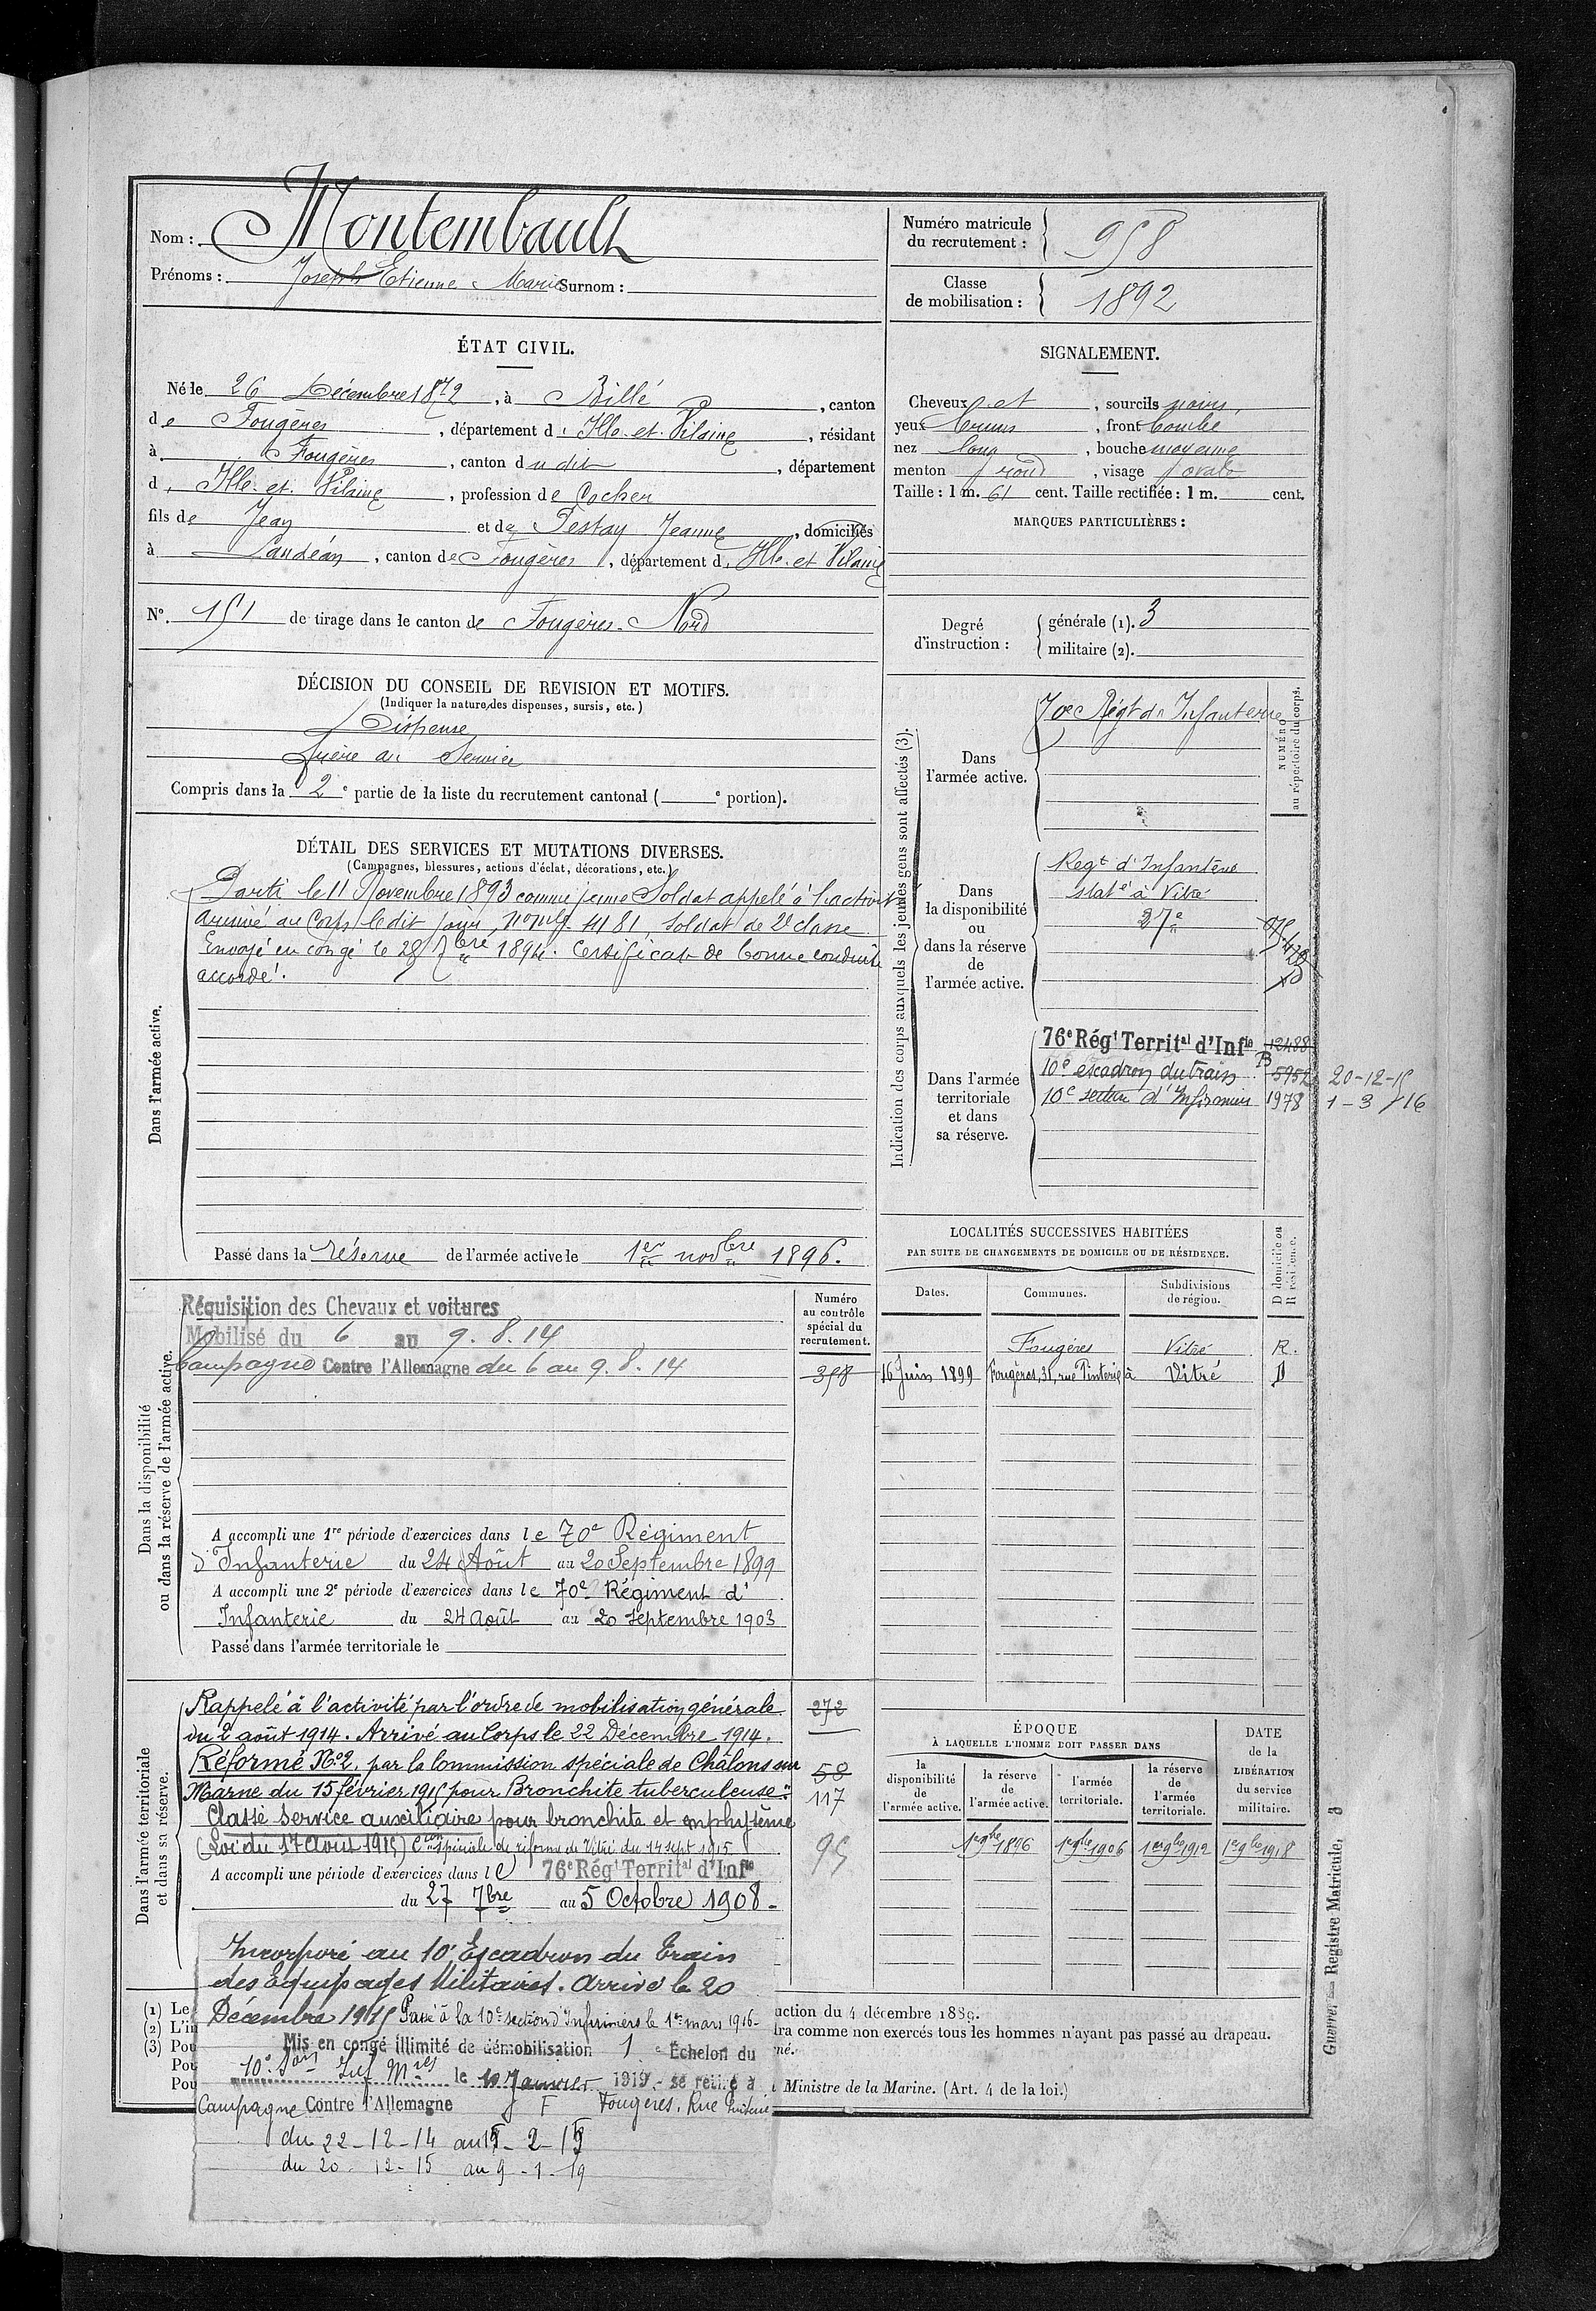 Nom : Montembault
Prénoms : Joseph Etienne Marie Surnom :
Numéro matricule du recrutement : 958
Classe de mobilisation : 1892
ÉTAT CIVIL.
Né le 26 Décembre 1872, à Billé, canton
de Fougères, département d'Ille-et-Vilaine, résidant
à Fougères, canton dudit, département
d'Ille-et-Vilaine, profession de Cocher
fils de Jean et de Pestay Jeanne, domiciliés
à Landéan, canton de Fougères, département d'Ille-et-Vilaine
N° 151 de tirage dans le canton de Fougères-Nord
SIGNALEMENT.
Cheveux et, sourcils noirs,
yeux bruns, front bombé
nez long, bouche moyenne
menton rond, visage ovale
Taille : 1 m. 61 cent. Taille rectifiée : 1 m. cent.
MARQUES PARTICULIÈRES :
Degré d'instruction :
générale (1). 3
militaire (2).
DÉCISION DU CONSEIL DE REVISION ET MOTIFS.
(Indiquer la nature des dispenses, sursis, etc.)
Dispensé
frère au Service
Compris dans la 2e partie de la liste du recrutement cantonal ( e portion).
DÉTAIL DES SERVICES ET MUTATIONS DIVERSES.
(Campagnes, blessures, actions d'éclat, décorations, etc.)
Dans l'armée active.
Parti le 11 Novembre 1893 comme jeune Soldat appelé à l'activité
arrivé au Corps le dit jour, n° mle 4181, soldat de 2e classe
Envoyé en congé le 28 7bre 1894. Certificat de bonne conduite
accordé.
Passé dans la réserve de l'armée active le 1er novbre 1896.
Indication des corps auxquels les jeunes gens sont affectés (3).
NUMÉRO au répertoire du corps.
Dans l'armée active.
70e Régt d'Infanterie
Dans la disponibilité ou dans la réserve de l'armée active.
Regt d'Infanterie
staté à Vitré
27e
Dans l'armée territoriale et dans sa réserve.
76e Régt Territal d'Infie 12488
10e escadron du train B 5952 20-12-15
10e section d'Infirmiers 1978 1-3-16
LOCALITÉS SUCCESSIVES HABITÉES
PAR SUITE DE CHANGEMENTS DE DOMICILE OU DE RÉSIDENCE.
Dates. Communes. Subdivisions de région. D domicile ou R résidence.
Fougères Vitré R.
16 Juin 1899 Fougères, 31, rue Pinterie à Vitré D
Dans la disponibilité ou dans la réserve de l'armée active.
Numéro au contrôle spécial du recrutement.
358
Réquisition des Chevaux et voitures
Mobilisé du 6 au 9.8.14
Campagne Contre l'Allemagne du 6 au 9.8.14
A accompli une 1re période d'exercices dans le 70e Régiment
d'Infanterie du 24 Août au 20 Septembre 1899
A accompli une 2e période d'exercices dans le 70e Régiment d'
Infanterie du 24 Août au 20 septembre 1903
Passé dans l'armée territoriale le
Dans l'armée territoriale et dans sa réserve.
Rappelé à l'activité par l'ordre de mobilisation générale 272
du 2 août 1914. Arrivé au Corps le 22 Décembre 1914.
Réformé N°2. par la Commission spéciale de Châlons sur 58
Marne du 15 février 1915 pour "Bronchite tuberculeuse" 117
Classé Service auxiliaire pour bronchite et emphysème
(Loi du 17 Août 1915) Con spéciale de réforme de Vitré du 14 sept 1915 95
A accompli une période d'exercices dans le 76e Régt Territal d'Infie
du 27 7bre au 5 Octobre 1908.
ÉPOQUE
À LAQUELLE L'HOMME DOIT PASSER DANS
la disponibilité de l'armée active. la réserve de l'armée active. l'armée territoriale. la réserve de l'armée territoriale.
DATE de la LIBÉRATION du service militaire.
1er 9bre 1896 1er 9bre 1906 1er 9bre 1912 1er 9bre 1918
Incorporé au 10e Escadron du train
des Equipages Militaires. Arrivé le 20
Décembre 1915 Passé à la 10e section d'Infirmiers le 1er mars 1916.
Mis en congé illimité de démobilisation 1e Échelon du
10e Son Inf Mres le 10 Janvier 1919. se retire à
Fougères. Rue Pinterie
Campagne Contre l'Allemagne
du 22-12-14 au 15-2-15
du 20-12-15 au 9-1-19
(1) Le
(2) L'in
(3) Pou
Pou
Pou
uction du 4 décembre 1889.
dra comme non exercés tous les hommes n'ayant pas passé au drapeau.
né.
Ministre de la Marine. (Art. 4 de la loi.)
Guerre. — Registre Matricule.